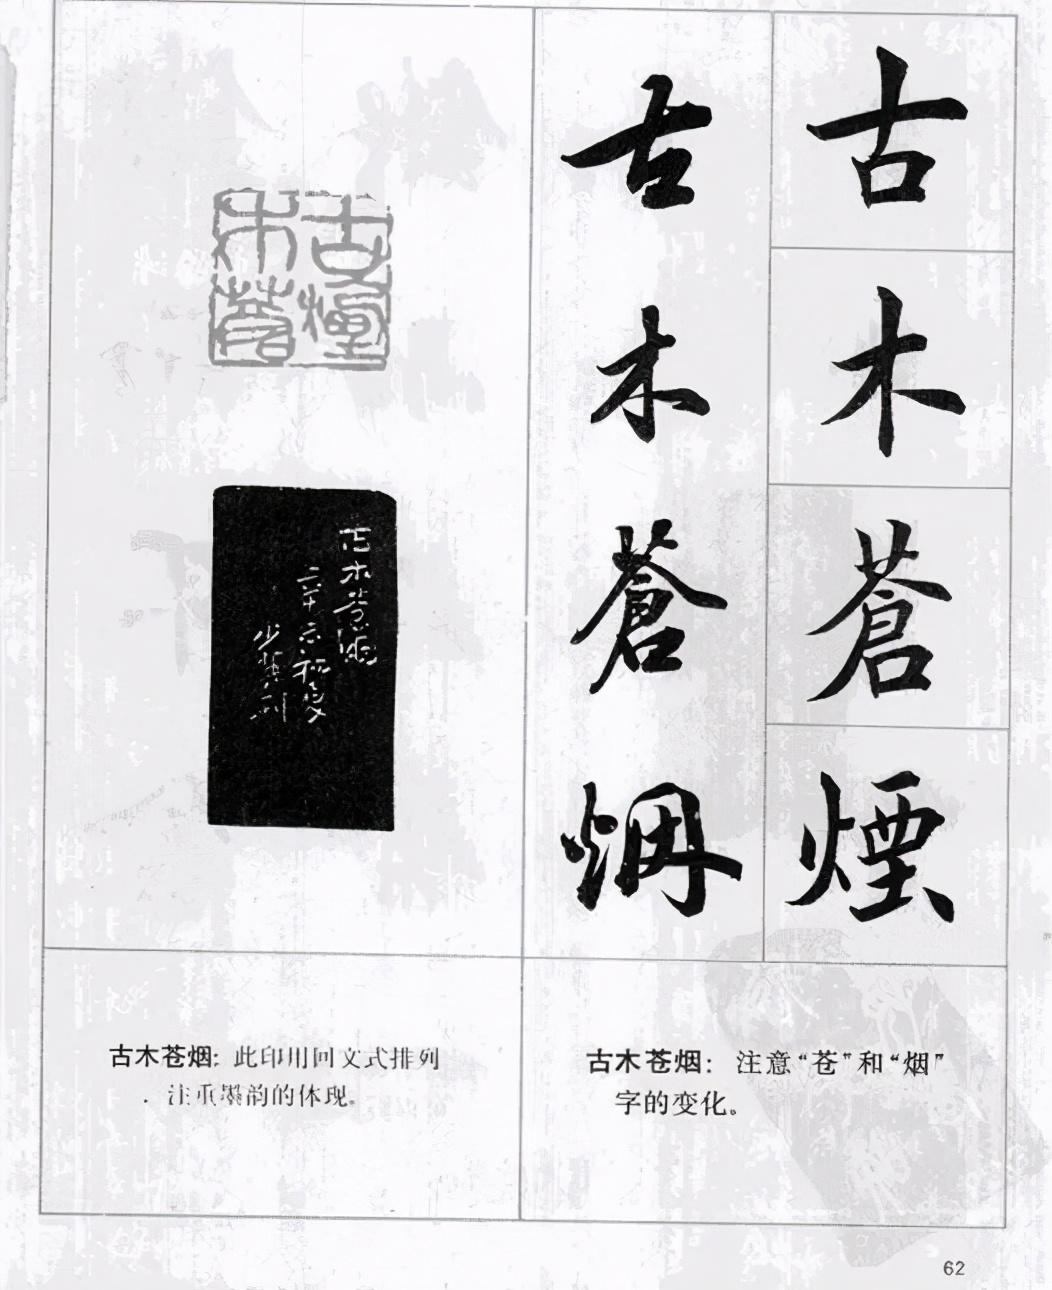 古木蒼煙
古木蒼烟
古木蒼煙
古木蒼烟
古木苍烟：此印用回文式排列
注重墨韵的体现。
古木苍烟：注意“苍”和“烟”
字的变化。
62